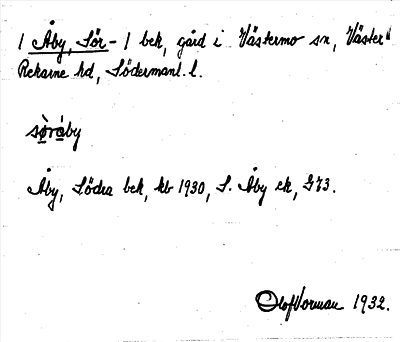 1 Åby, Sör- 1 bek, gård i Västermo sn, Väster-
Rekarne hd, Södermanl. l.
sø̀råby
Åby, Södra bek, kb 1930, S. Åby ek, G73.
Olof Vorman 1932.